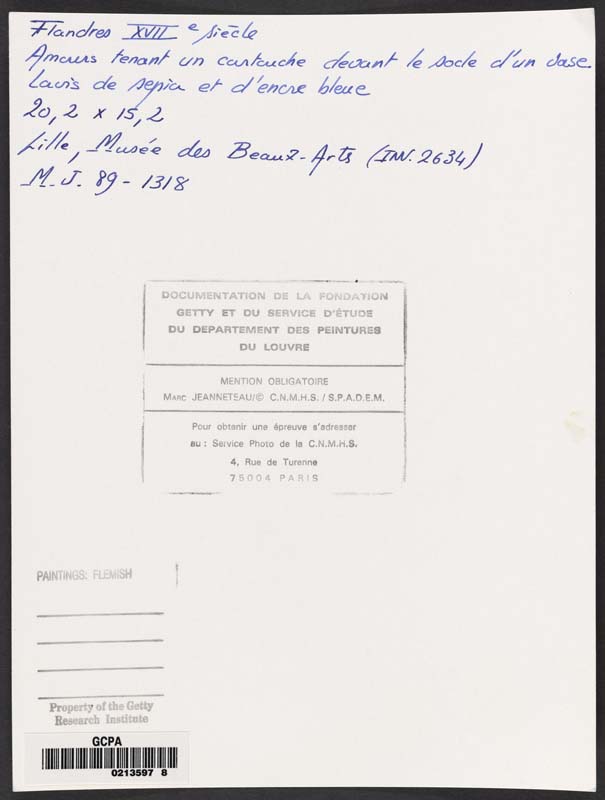 Flandres XVII e siècle
Amours tenant un cartouche devant le socle d'un vase
Lavis de sepia et d'encre bleue
20,2 x 15,2
Lille, Musée des Beaux-Arts (INV. 2634)
M.J. 89 - 1318
DOCUMENTATION DE LA FONDATION
GETTY ET DU SERVICE D'ÉTUDE
DU DEPARTEMENT DES PEINTURES
DU LOUVRE
MENTION OBLIGATOIRE
MARC JEANNETEAU/© C.N.M.H.S. / S.P.A.D.E.M.
Pour obtenir une épreuve s'adresser
au : Service Photo de la C.N.M.H.S.
4, Rue de Turenne
75004 PARIS
PAINTINGS: FLEMISH
Property of the Getty
Research Institute
GCPA
0213597 8